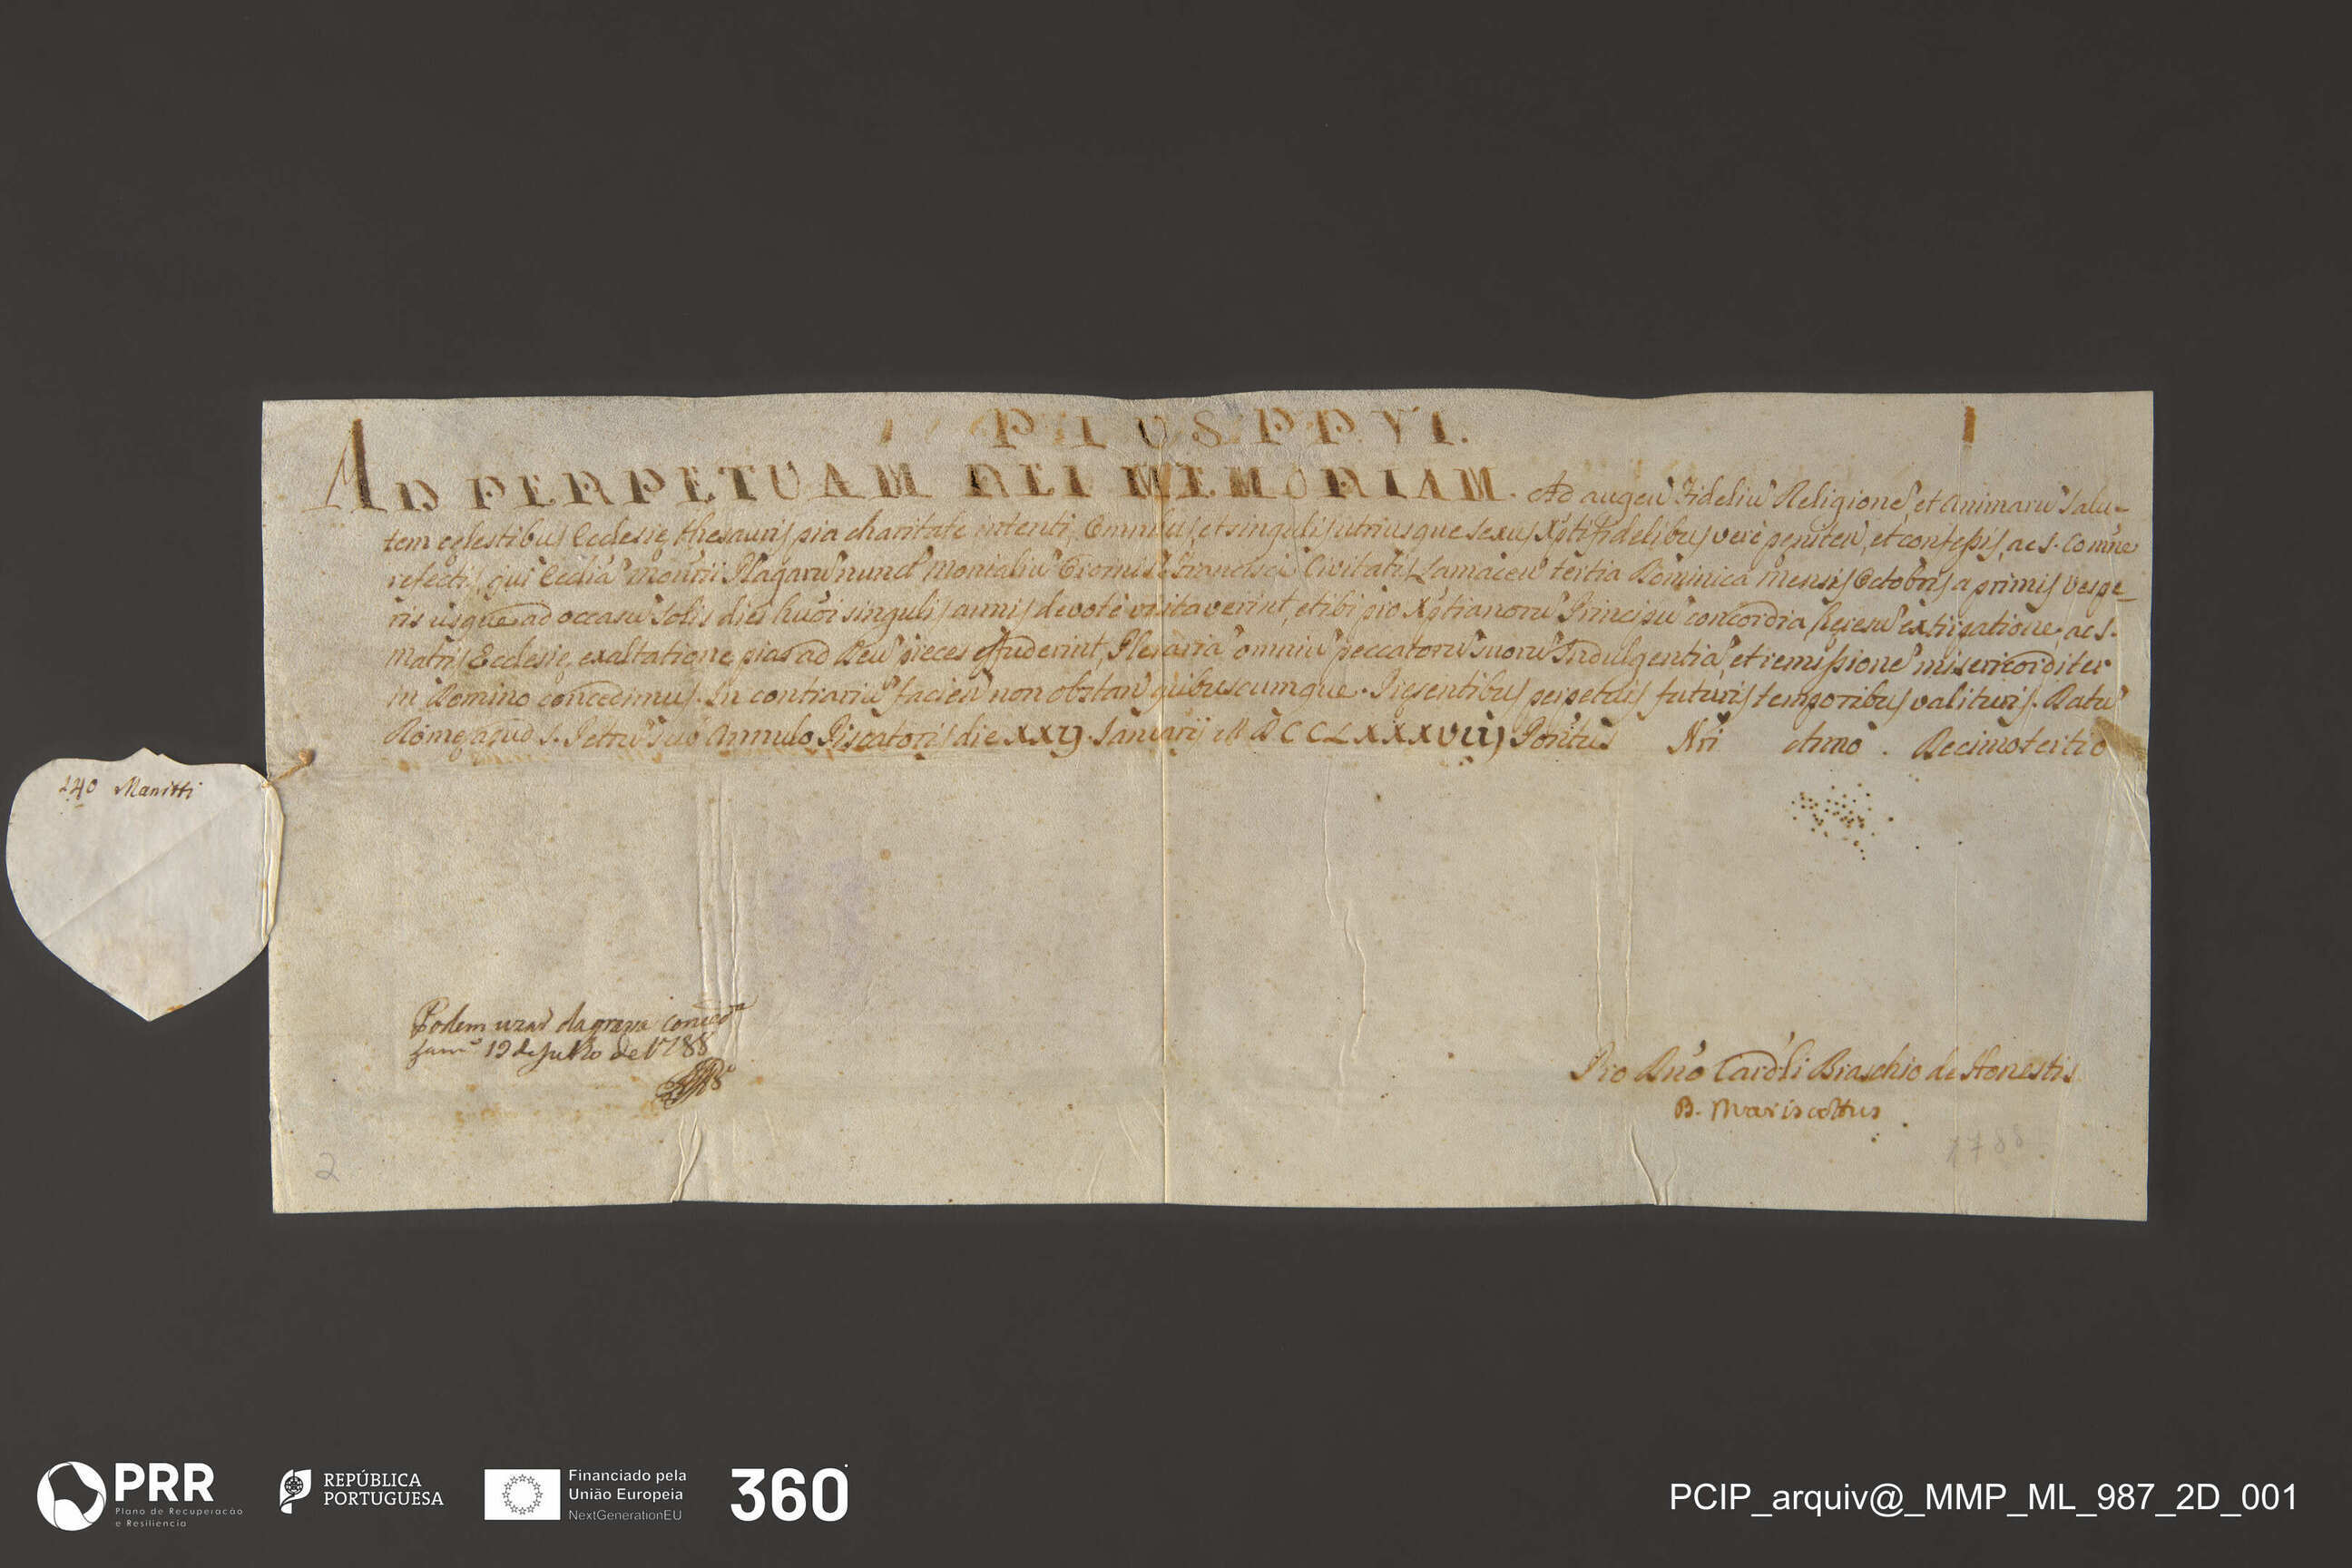 PIUS PP. VI.
AD PERPETUAM REI MEMORIAM. Ad augeñ Fideliũ Religionẽ, et Animarũ Salu-
tem cęlestibus Ecclesię thesauris pia charitate intenti, Omnibus, et singulis utriusque sexus Xp̃tifidelibus verè pęniteñ, et confessis, ac S. Com̃ne
refectis, qui Ecclĩã Mon̄rii Plagarũ nunc Monialiũ Ordinis S. Francisci Civitatis Lamaceñ tertia Dominica mensis Octobris a primis Vespe-
ris usque ad occasũ Solis diei hũõi singulis annis devotè visitaverint, et ibi pro Xp̃tianorũ Principũ concordia, hęresũ extirpatione, ac S.
Matris Ecclesię exaltatione pias ad Deũ pręces effuderint, Plenariã omniũ peccatorũ suorũ Indulgentiã, et remissionẽ misericorditer
in Domino concedimus. In contrariũ facieñ non obstañ quibuscumque. Pręsentibus perpetuis futuris temporibus valituris. Datũ
Romę apud S. Petrũ Sub Annulo Piscatoris die XXIJ. Januarii MDCCLXXXVIIJ Pontũs Nr̃i Anno. Decimotertio
240 Manitti
Podem uzar da graça conced.ª
Lam.º 19 de Julho de 1788
Pro Dño Card̃li Braschio de Honestis
B. Mariscottus
2
1788
PRR
Plano de Recuperação
e Resiliência
REPÚBLICA
PORTUGUESA
Financiado pela
União Europeia
NextGenerationEU
360
PCIP_arquiv@_MMP_ML_987_2D_001